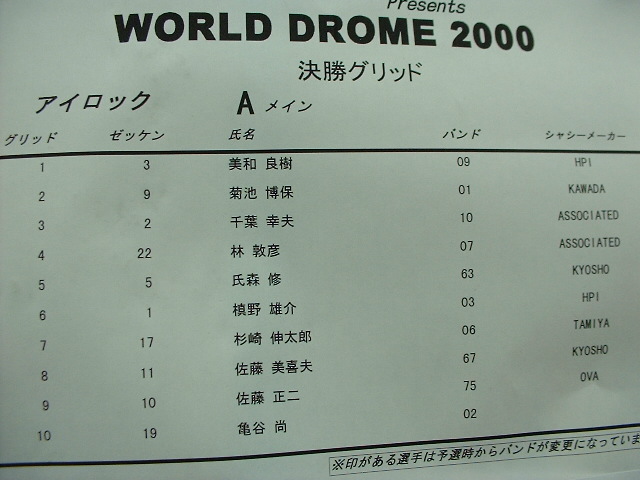 Presents
WORLD DROME 2000
決勝グリッド
アイロック A メイン
グリッド ゼッケン 氏名 バンド シャシーメーカー
1 3 美和 良樹 09 HPI
2 9 菊池 博保 01 KAWADA
3 2 千葉 幸夫 10 ASSOCIATED
4 22 林 敦彦 07 ASSOCIATED
5 5 氏森 修 63 KYOSHO
6 1 槙野 雄介 03 HPI
7 17 杉崎 伸太郎 06 TAMIYA
8 11 佐藤 美喜夫 67 KYOSHO
9 10 佐藤 正二 75 OVA
10 19 亀谷 尚 02
※印がある選手は予選時からバンドが変更になっていま